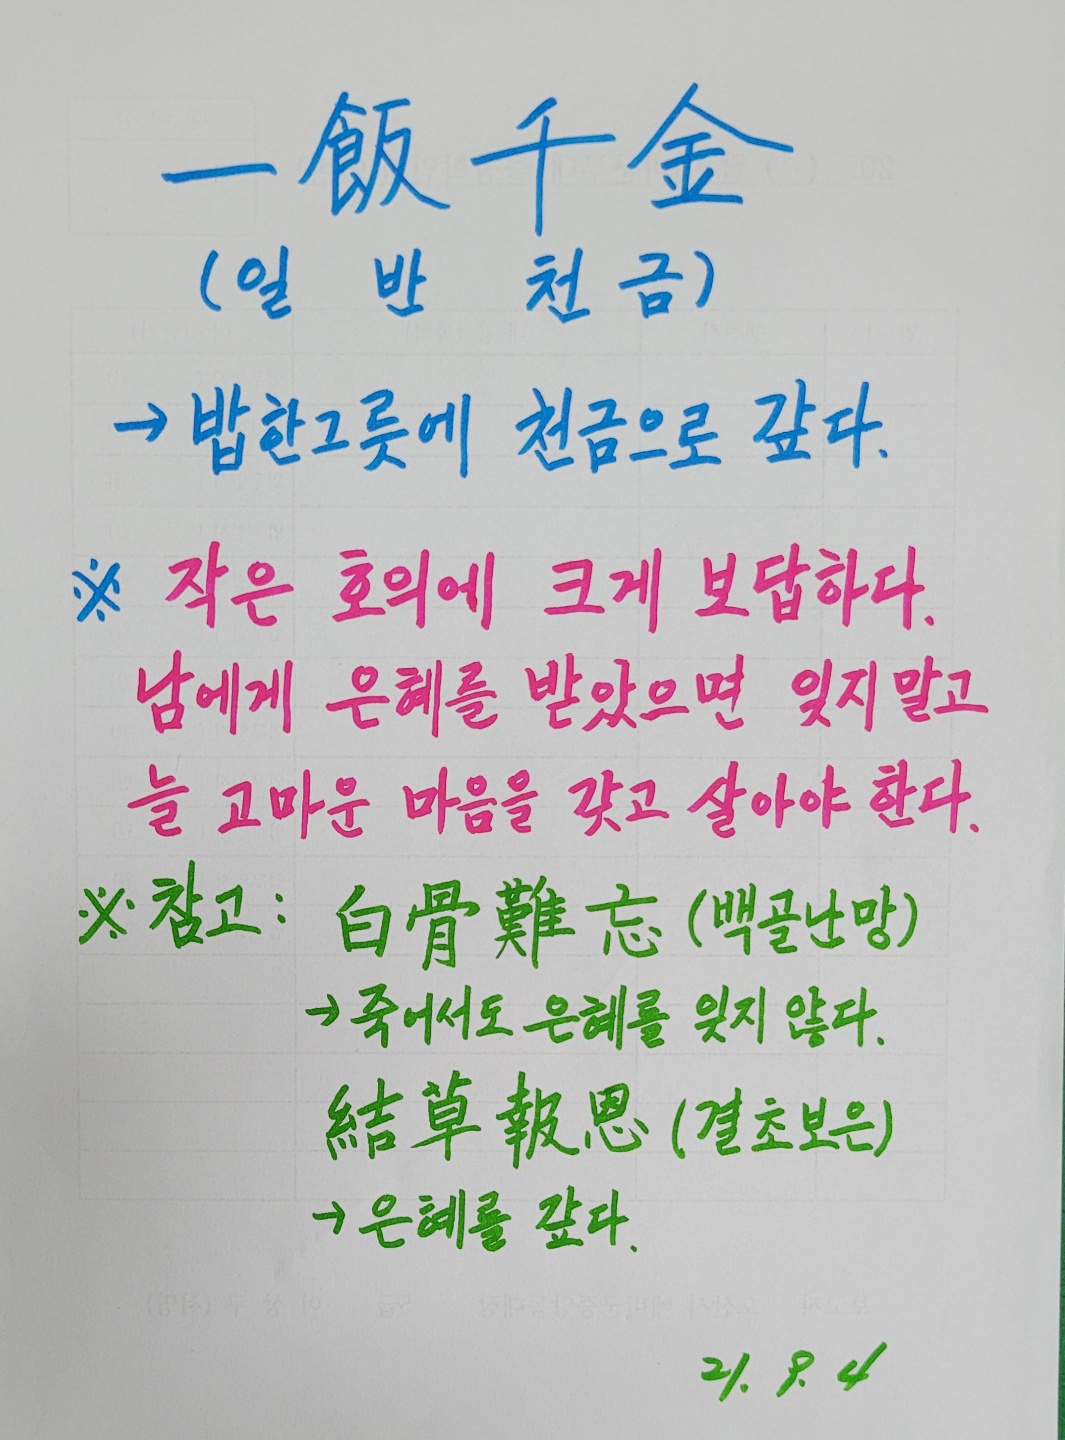 一飯千金
(일 반 천금)
→ 밥한그릇에 천금으로 갚다.
※ 작은 호의에 크게 보답하다.
남에게 은혜를 받았으면 잊지말고
늘 고마운 마음을 갖고 살아야 한다.
※ 참고: 白骨難忘 (백골난망)
→ 죽어서도 은혜를 잊지 않다.
結草報恩 (결초보은)
→ 은혜를 갚다.
21. 9. 4